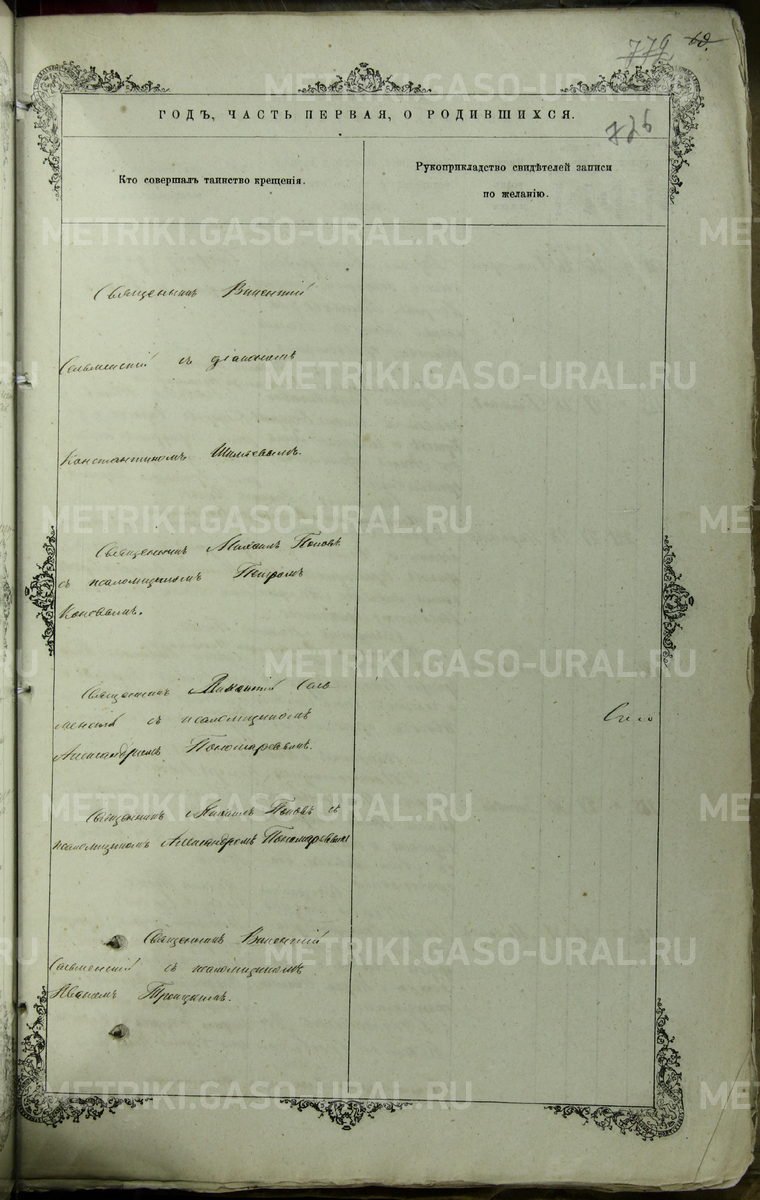 779
69.
726
ГОДЪ, ЧАСТЬ ПЕРВАЯ, О РОДИВШИХСЯ.
Кто совершалъ таинство крещенія.
Рукоприкладство свидѣтелей записи
по желанію.
Священникъ Викентій
съ діакономъ
Константиномъ
Священникъ Михаилъ Поповъ
съ псаломщикомъ Петромъ
Священникъ Викентій
съ псаломщикомъ
Александромъ Пономаревымъ.
Священникъ Михаилъ Поповъ съ
псаломщикомъ Александромъ Пономаревымъ
Священникъ Викентій
съ псаломщикомъ
Иваномъ Троицкимъ.
METRIKI.GASO-URAL.RU